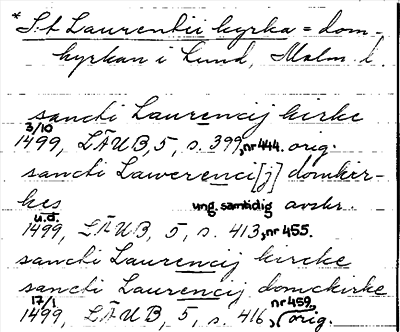 *S:t Laurentii kyrka = dom-
kyrkan i Lund, Malm. l.
sancti Laurencij kirke
3/10
1499, LÄUB, 5, s. 399, nr 444. orig.
sancti Lawerenci[j] domkir-
kes ung. samtidig avskr.
u.d.
1499, LÄUB, 5, s. 413, nr 455.
sancti Laurencij kircke
sancti Laurencij domckirke
17/1 nr 459,
1499, LÄUB, 5, s. 416, orig.